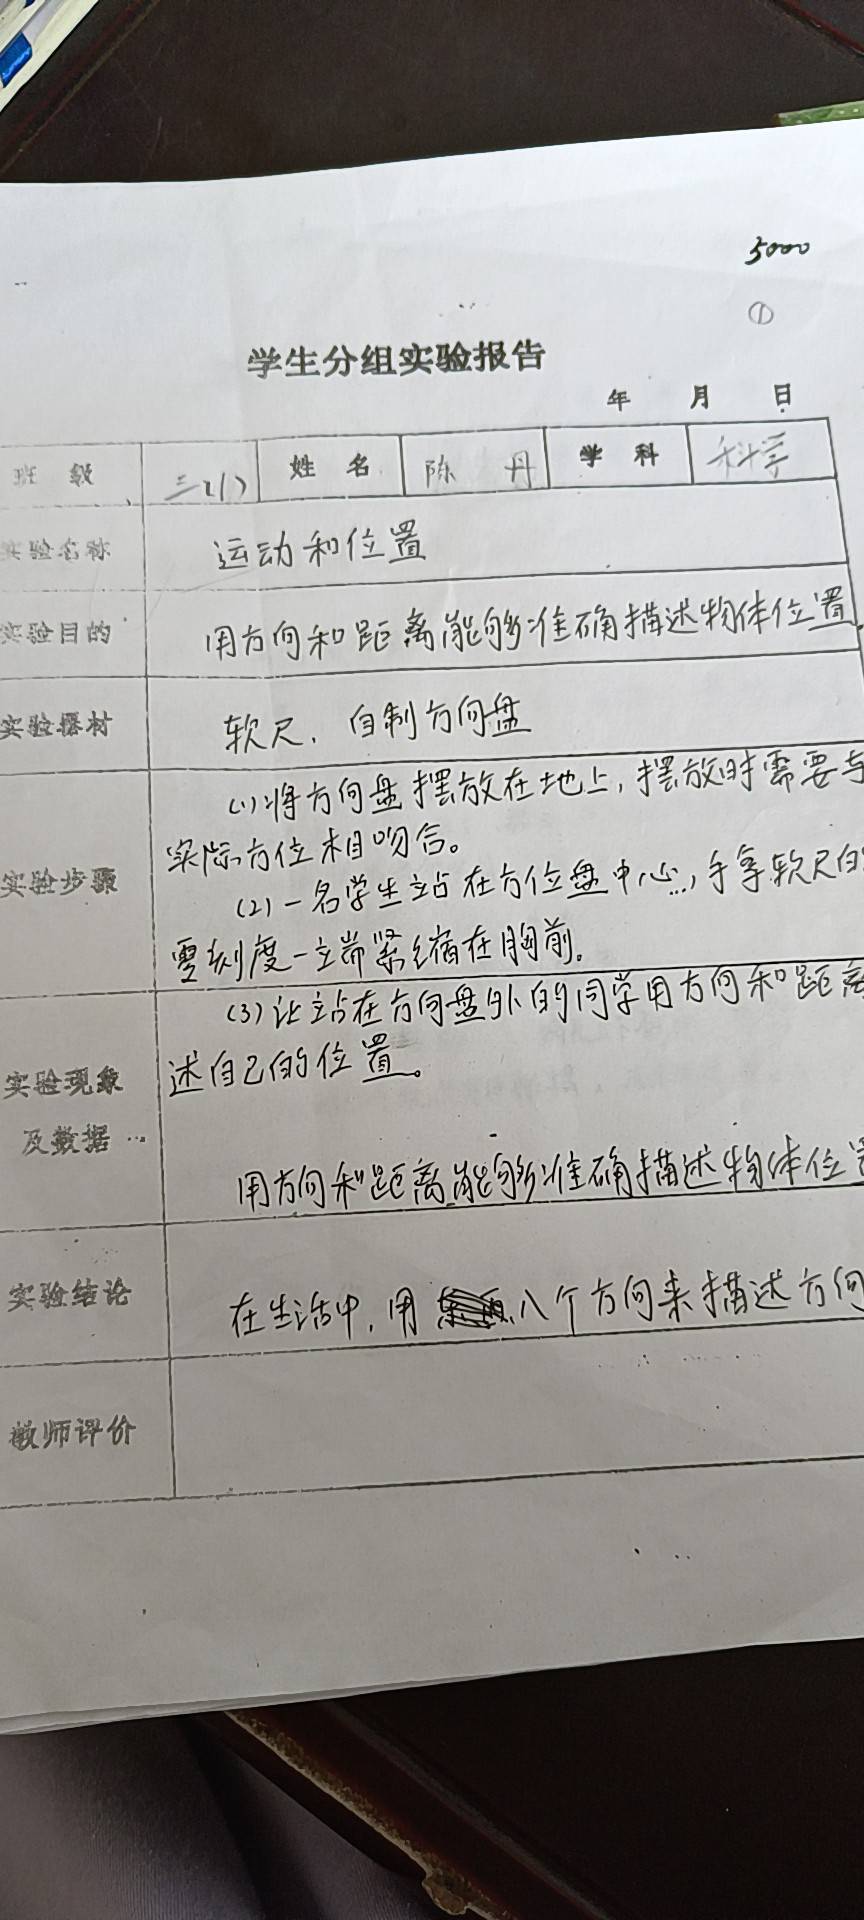 5000
①
学生分组实验报告
年 月 日
班 级 三(1) 姓 名 陈 丹 学 科 科学
实验名称 运动和位置
实验目的 用方向和距离能够准确描述物体位置
实验器材 软尺、自制方向盘
(1)将方向盘摆放在地上,摆放时需要与
实际方位相吻合。
实验步骤
(2)一名学生站在方位盘中心,手拿软尺的
零刻度一端紧缩在胸前。
(3)让站在方向盘外的同学用方向和距离
述自己的位置。
实验现象
及数据
用方向和距离能够准确描述物体位置
实验结论 在生活中,用八个方向来描述方向
教师评价